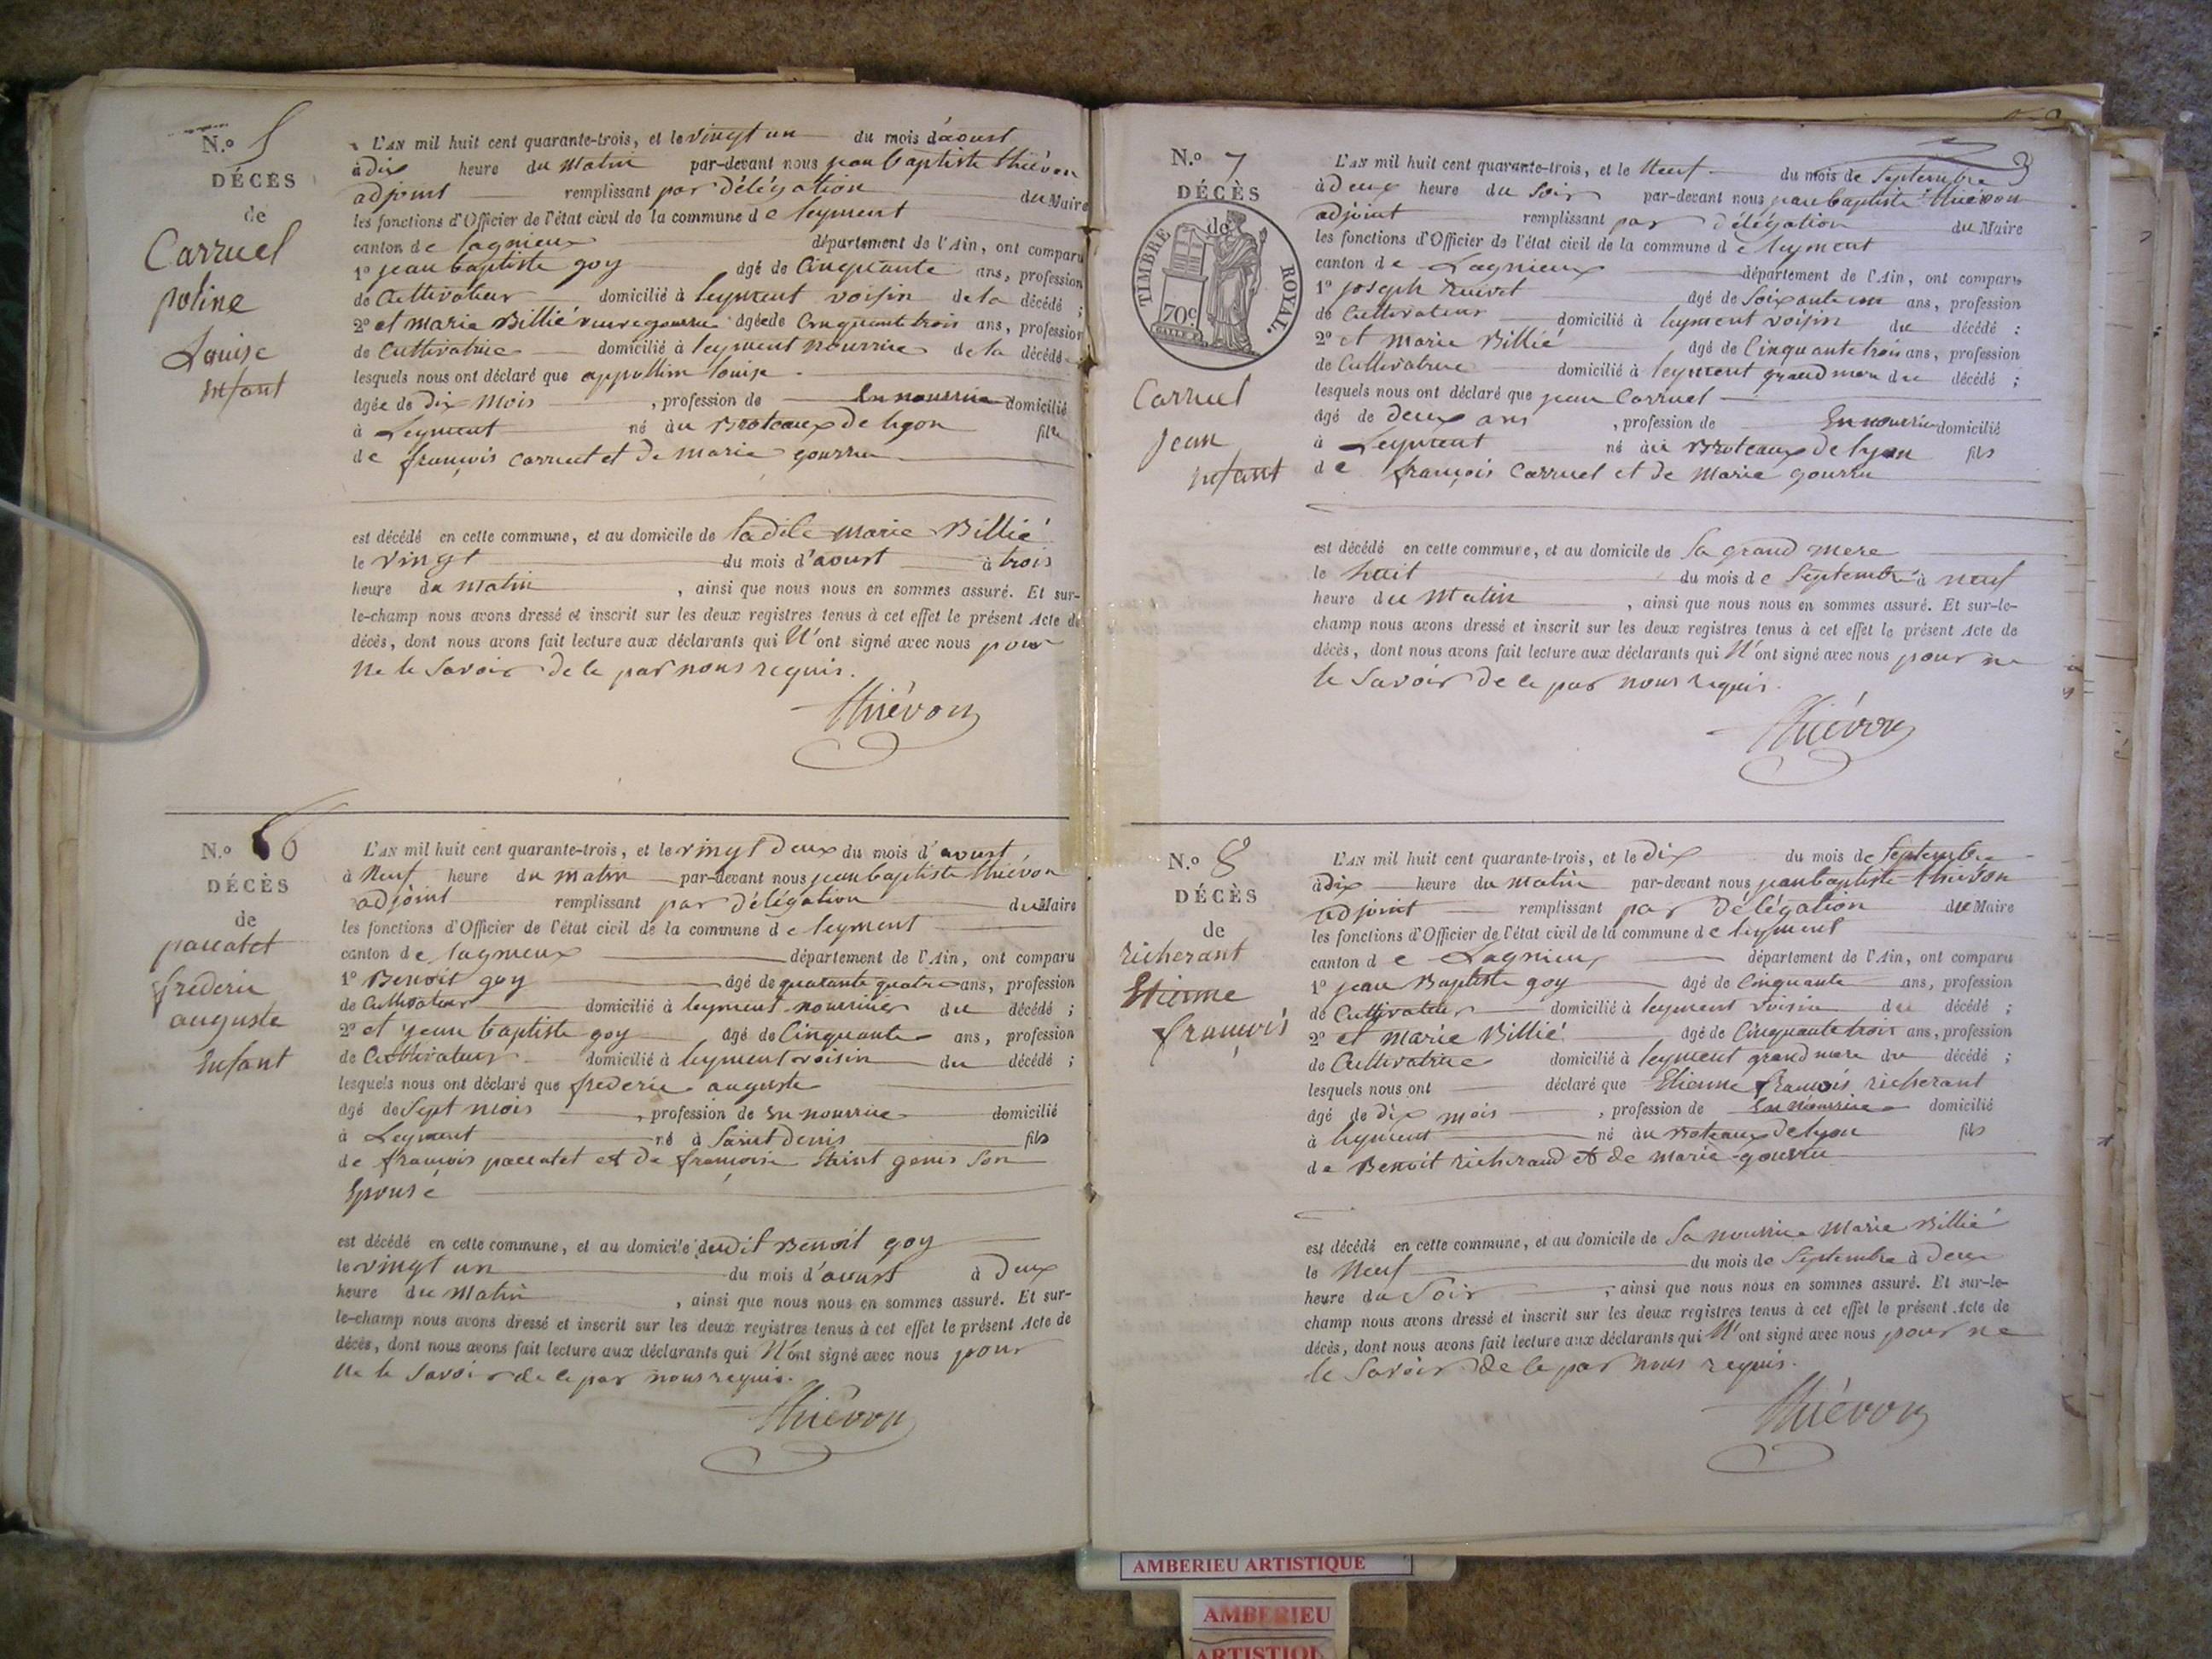 N.º 5
DÉCÈS
de
Carruel
poline
Louise
enfant
L'AN mil huit cent quarante-trois, et le vingt un du mois d'aoust
à dix heure du matin par-devant nous jean baptiste thiévon
adjoint remplissant par délégation du Maire
les fonctions d'Officier de l'état civil de la commune de leyment
canton de lagnieux département de l'Ain, ont comparu
1º jean baptiste goy âgé de Cinquante ans, profession
de Cultivateur domicilié à leyment voisin de la décédé ;
2º et marie Billié veuve gourru âgée de Cinquante trois ans, profession
de Cultivatrice domicilié à leyment nourrice de la décédé
lesquels nous ont déclaré que appolline louise
âgée de dix mois , profession de En nourrice domicilié
à Leyment né au Broteaux de lyon fille
de françois carruel et de marie gourru
est décédé en cette commune, et au domicile de ladite marie Billié
le vingt du mois d'aoust à trois
heure du matin , ainsi que nous nous en sommes assuré. Et sur-
le-champ nous avons dressé et inscrit sur les deux registres tenus à cet effet le présent Acte de
décès, dont nous avons fait lecture aux déclarants qui N'ont signé avec nous pour
ne le savoir de ce par nous requis.
thiévon
N.º 6
DÉCÈS
de
paccatet
frederic
auguste
Enfant
L'AN mil huit cent quarante-trois, et le vingt deux du mois d'aoust
à neuf heure du matin par-devant nous jean baptiste thiévon
adjoint remplissant par délégation du Maire
les fonctions d'Officier de l'état civil de la commune de leyment
canton de lagnieux département de l'Ain, ont comparu
1º Benoit goy âgé de quarante quatre ans, profession
de Cultivateur domicilié à leyment nourricier du décédé ;
2º et jean baptiste goy âgé de Cinquante ans, profession
de Cultivateur domicilié à leyment voisin du décédé ;
lesquels nous ont déclaré que frederic auguste
âgé de sept mois , profession de En nourrice domicilié
à Leyment né à Saint Denis fils
de françois paccatet et de françoise Saint genis Son
Epouse
est décédé en cette commune, et au domicile dudit Benoit goy
le vingt un du mois d'aoust à deux
heure du matin , ainsi que nous nous en sommes assuré. Et sur-
le-champ nous avons dressé et inscrit sur les deux registres tenus à cet effet le présent Acte de
décès, dont nous avons fait lecture aux déclarants qui N'ont signé avec nous pour
ne le savoir de ce par nous requis.
thiévon
3
N.º 7
DÉCÈS
de
TIMBRE ROYAL.
70c
Carruel
jean
enfant
L'AN mil huit cent quarante-trois, et le Neuf du mois de Septembre
à deux heure du Soir par-devant nous jean baptiste thiévon
adjoint remplissant par délégation du Maire
les fonctions d'Officier de l'état civil de la commune de leyment
canton de Lagnieux département de l'Ain, ont comparu
1º joseph âgé de Soixante un ans, profession
de Cultivateur domicilié à leyment voisin du décédé :
2º et Marie Billié âgé de Cinquante trois ans, profession
de Cultivatrice domicilié à leyment grand mere du décédé ;
lesquels nous ont déclaré que jean Carruel
âgé de deux ans , profession de En nourrice domicilié
à Leyment né au Broteaux de lyon fils
de françois Carruel et de Marie gourru
est décédé en cette commune, et au domicile de Sa grand mere
le huit du mois de Septembre à neuf
heure du Matin , ainsi que nous nous en sommes assuré. Et sur-le-
champ nous avons dressé et inscrit sur les deux registres tenus à cet effet le présent Acte de
décès, dont nous avons fait lecture aux déclarants qui N'ont signé avec nous pour ne
le savoir de ce par nous requis.
thiévon
N.º 8
DÉCÈS
de
richerant
Etienne
françois
L'AN mil huit cent quarante-trois, et le dix du mois de Septembre
à dix heure du matin par-devant nous jean baptiste thiévon
adjoint remplissant par délégation du Maire
les fonctions d'Officier de l'état civil de la commune de leyment
canton de Lagnieux département de l'Ain, ont comparu
1º jean Baptiste goy âgé de Cinquante ans, profession
de Cultivateur domicilié à leyment voisin du décédé ;
2º et marie Billié âgé de Cinquante trois ans, profession
de Cultivatrice domicilié à leyment grand mere du décédé ;
lesquels nous ont déclaré que Etienne françois richerant
âgé de dix mois , profession de En Nourrice domicilié
à leyment né au Broteaux de lyon fils
de Benoit richerand et de marie gourru
est décédé en cette commune, et au domicile de Sa nourrice Marie Billié
le Neuf du mois de Septembre à deux
heure du Soir , ainsi que nous nous en sommes assuré. Et sur-le-
champ nous avons dressé et inscrit sur les deux registres tenus à cet effet le présent Acte de
décès, dont nous avons fait lecture aux déclarants qui N'ont signé avec nous pour ne
le Savoir de ce par nous requis.
thiévon
AMBERIEU ARTISTIQUE
AMBERIEU